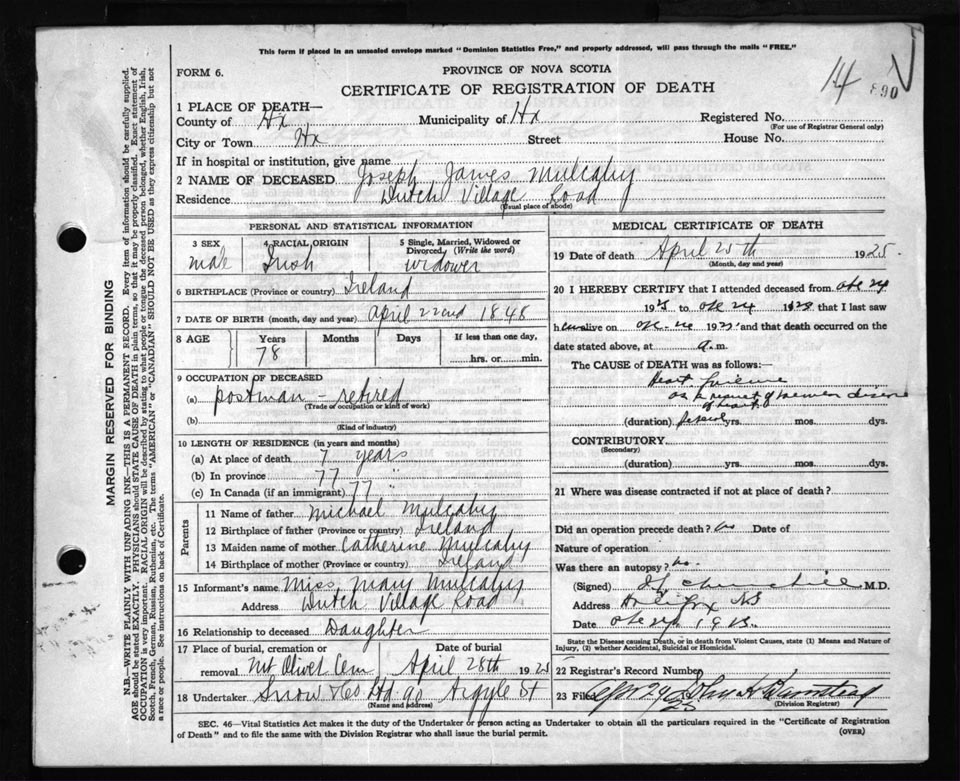 This form if placed in an unsealed envelope marked "Dominion Statistics Free," and properly addressed, will pass through the mails "FREE."
14 890
FORM 6.
PROVINCE OF NOVA SCOTIA
CERTIFICATE OF REGISTRATION OF DEATH
1 PLACE OF DEATH—
County of Hx Municipality of Hx Registered No.
(For use of Registrar General only)
City or Town Hx Street House No.
If in hospital or institution, give name
2 NAME OF DECEASED Joseph James Mulcahy
Residence Dutch Village Road
(Usual place of abode)
PERSONAL AND STATISTICAL INFORMATION
3 SEX
male
4 RACIAL ORIGIN
Irish
5 Single, Married, Widowed or Divorced, (Write the word)
widower
6 BIRTHPLACE (Province or country) Ireland
7 DATE OF BIRTH (month, day and year) April 22nd 1848
8 AGE Years Months Days If less than one day,
78 hrs. or min.
9 OCCUPATION OF DECEASED
(a) postman - retired
(Trade or occupation or kind of work)
(b)
(Kind of industry)
10 LENGTH OF RESIDENCE (in years and months)
(a) At place of death 7 years
(b) In province 77 "
(c) In Canada (if an immigrant) 77 "
Parents
11 Name of father Michael Mulcahy
12 Birthplace of father (Province or country) Ireland
13 Maiden name of mother Catherine Mulcahy
14 Birthplace of mother (Province or country) Ireland
15 Informant's name Miss Mary Mulcahy
Address Dutch Village Road
16 Relationship to deceased Daughter
17 Place of burial, cremation or removal Mt Olivet Cem
Date of burial April 28th 1925
18 Undertaker Snow & Co Ltd 90 Argyle St
(Name and address)
MEDICAL CERTIFICATE OF DEATH
19 Date of death April 25th 1925
(Month, day and year)
20 I HEREBY CERTIFY that I attended deceased from
192 to 192 that I last saw
h alive on 192 and that death occurred on
date stated above, at a.m.
The CAUSE of DEATH was as follows:—
Heart failure
of heart
(duration) yrs. mos. dys.
CONTRIBUTORY
(Secondary)
(duration) yrs. mos. dys.
21 Where was disease contracted if not at place of death?
Did an operation precede death? no Date of
Nature of operation
Was there an autopsy? no
(Signed) Churchill M.D.
Address Halifax NS
Date
State the Disease causing Death, or in death from Violent Causes, state (1) Means and Nature of Injury, (2) whether Accidental, Suicidal or Homicidal.
22 Registrar's Record Number
23 Filed 25 John
(Division Registrar)
SEC. 46—Vital Statistics Act makes it the duty of the Undertaker or person acting as Undertaker to obtain all the particulars required in the "Certificate of Registration
of Death" and to file the same with the Division Registrar who shall issue the burial permit.
(OVER)
MARGIN RESERVED FOR BINDING
N.B.—WRITE PLAINLY WITH UNFADING INK—THIS IS A PERMANENT RECORD. Every item of information should be carefully supplied.
AGE should be stated EXACTLY. PHYSICIANS should STATE CAUSE OF DEATH in plain terms, so that it may be properly classified. Exact statement of
OCCUPATION is very important. RACIAL ORIGIN will be described by stating to what people or tongue the deceased person belonged, whether English, Irish,
Scotch, French, German, Russian, Ruthenian, etc. The terms "AMERICAN" or "CANADIAN" SHOULD NOT BE USED as they express citizenship but not
a race or people. See instructions on back of Certificate.